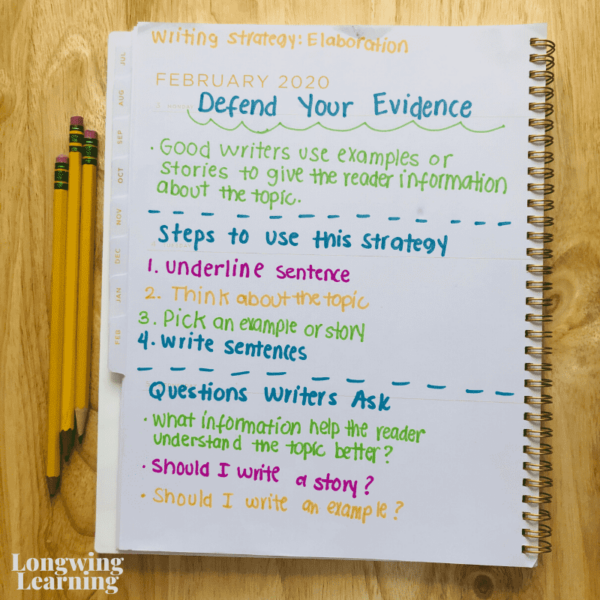 Writing Strategy: Elaboration
FEBRUARY 2020
Defend Your Evidence
• Good writers use examples or
stories to give the reader information
about the topic.
Steps to use this strategy
1. underline sentence
2. Think about the topic
3. Pick an example or story
4. write sentences
Questions Writers Ask
• What information help the reader
understand the topic better?
• Should I write a story?
• Should I write an example?
JUL
AUG
SEP
OCT
NOV
DEC
JAN
FEB
Longwing
Learning